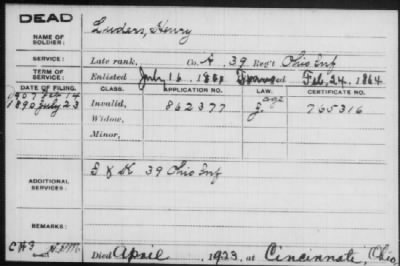 DEAD
NAME OF SOLDIER: Luders, Henry
SERVICE: Late rank, Co. A, 39 Reg't Ohio Inf
TERM OF SERVICE: Enlisted July 16 1861 Discharged Feb. 24, 1864
DATE OF FILING. CLASS. APPLICATION NO. LAW. CERTIFICATE NO.
1907 14 age
1890 July 23 Invalid, 862377 765316
Widow,
Minor,
ADDITIONAL SERVICES: G & K 39 Ohio Inf
REMARKS:
Died April 1923, at Cincinnati, Ohio